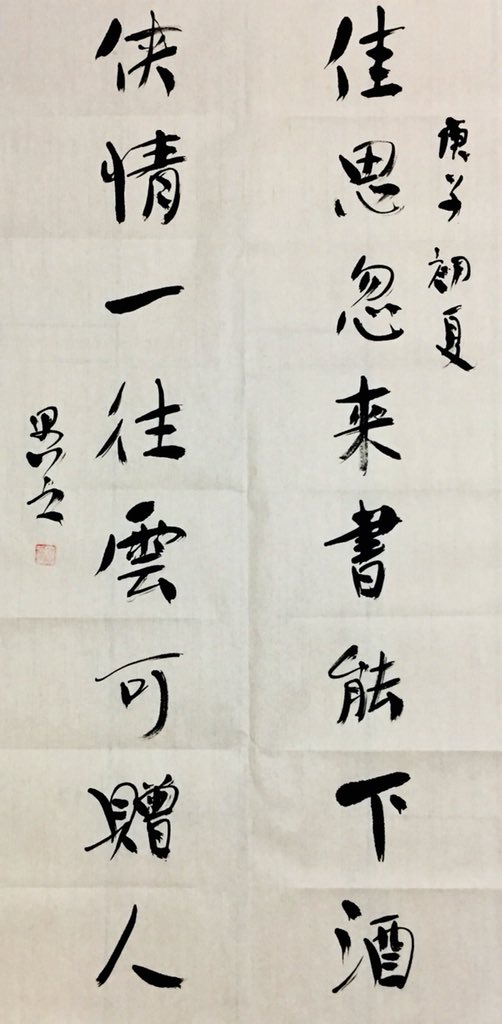 庚子朗夏
佳思忽來書能下酒
俠情一往雲可贈人